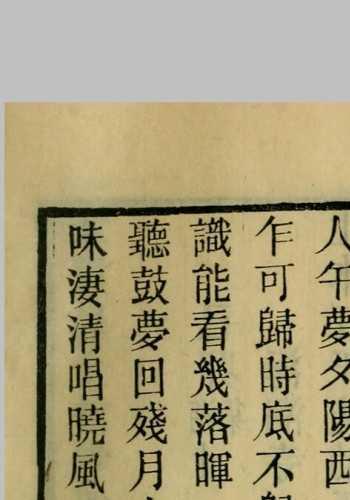 人午夢夕陽西
乍可歸時底不
識能看幾落暉
聽鼓夢回殘月
味淒清唱曉風